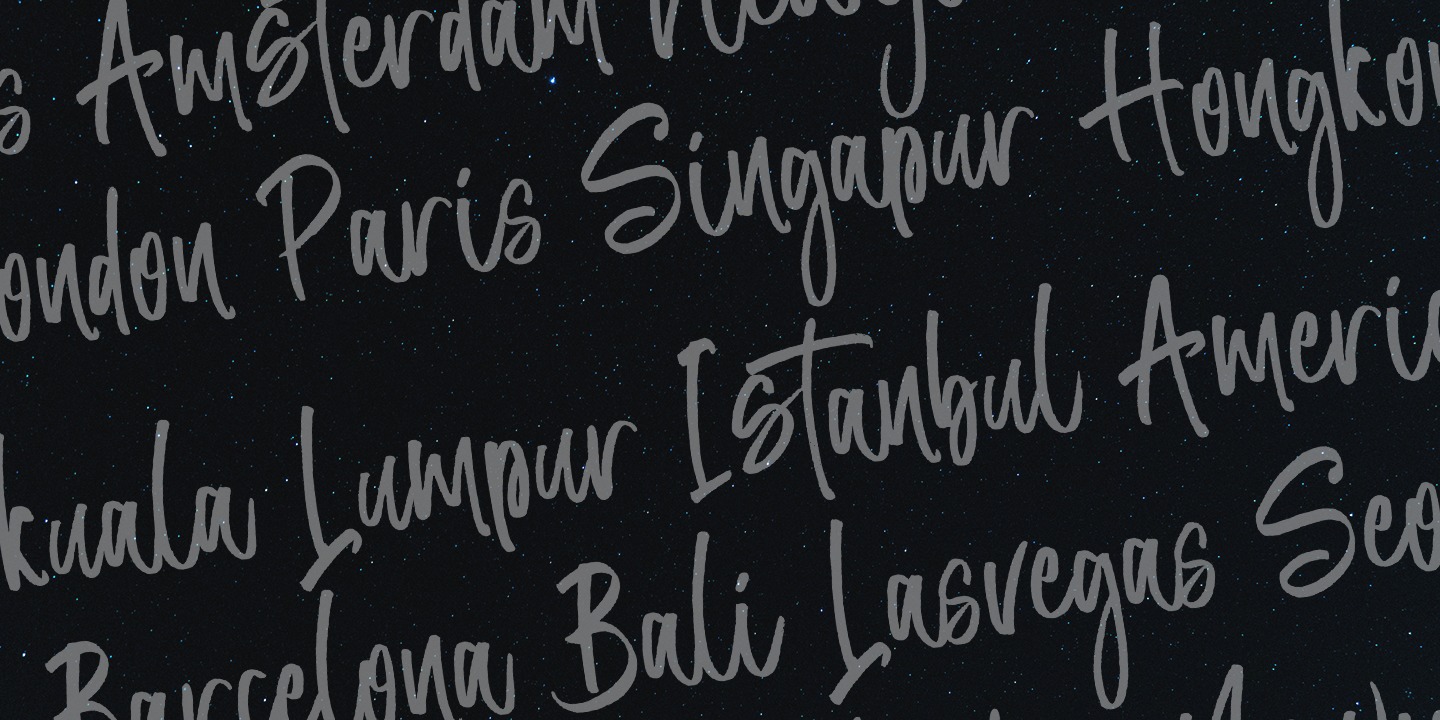 s Amsterdam
ondon Paris Singapur Hongko
kuala Lumpur Istanbul Americ
Barcelona Bali Lasvegas Seo